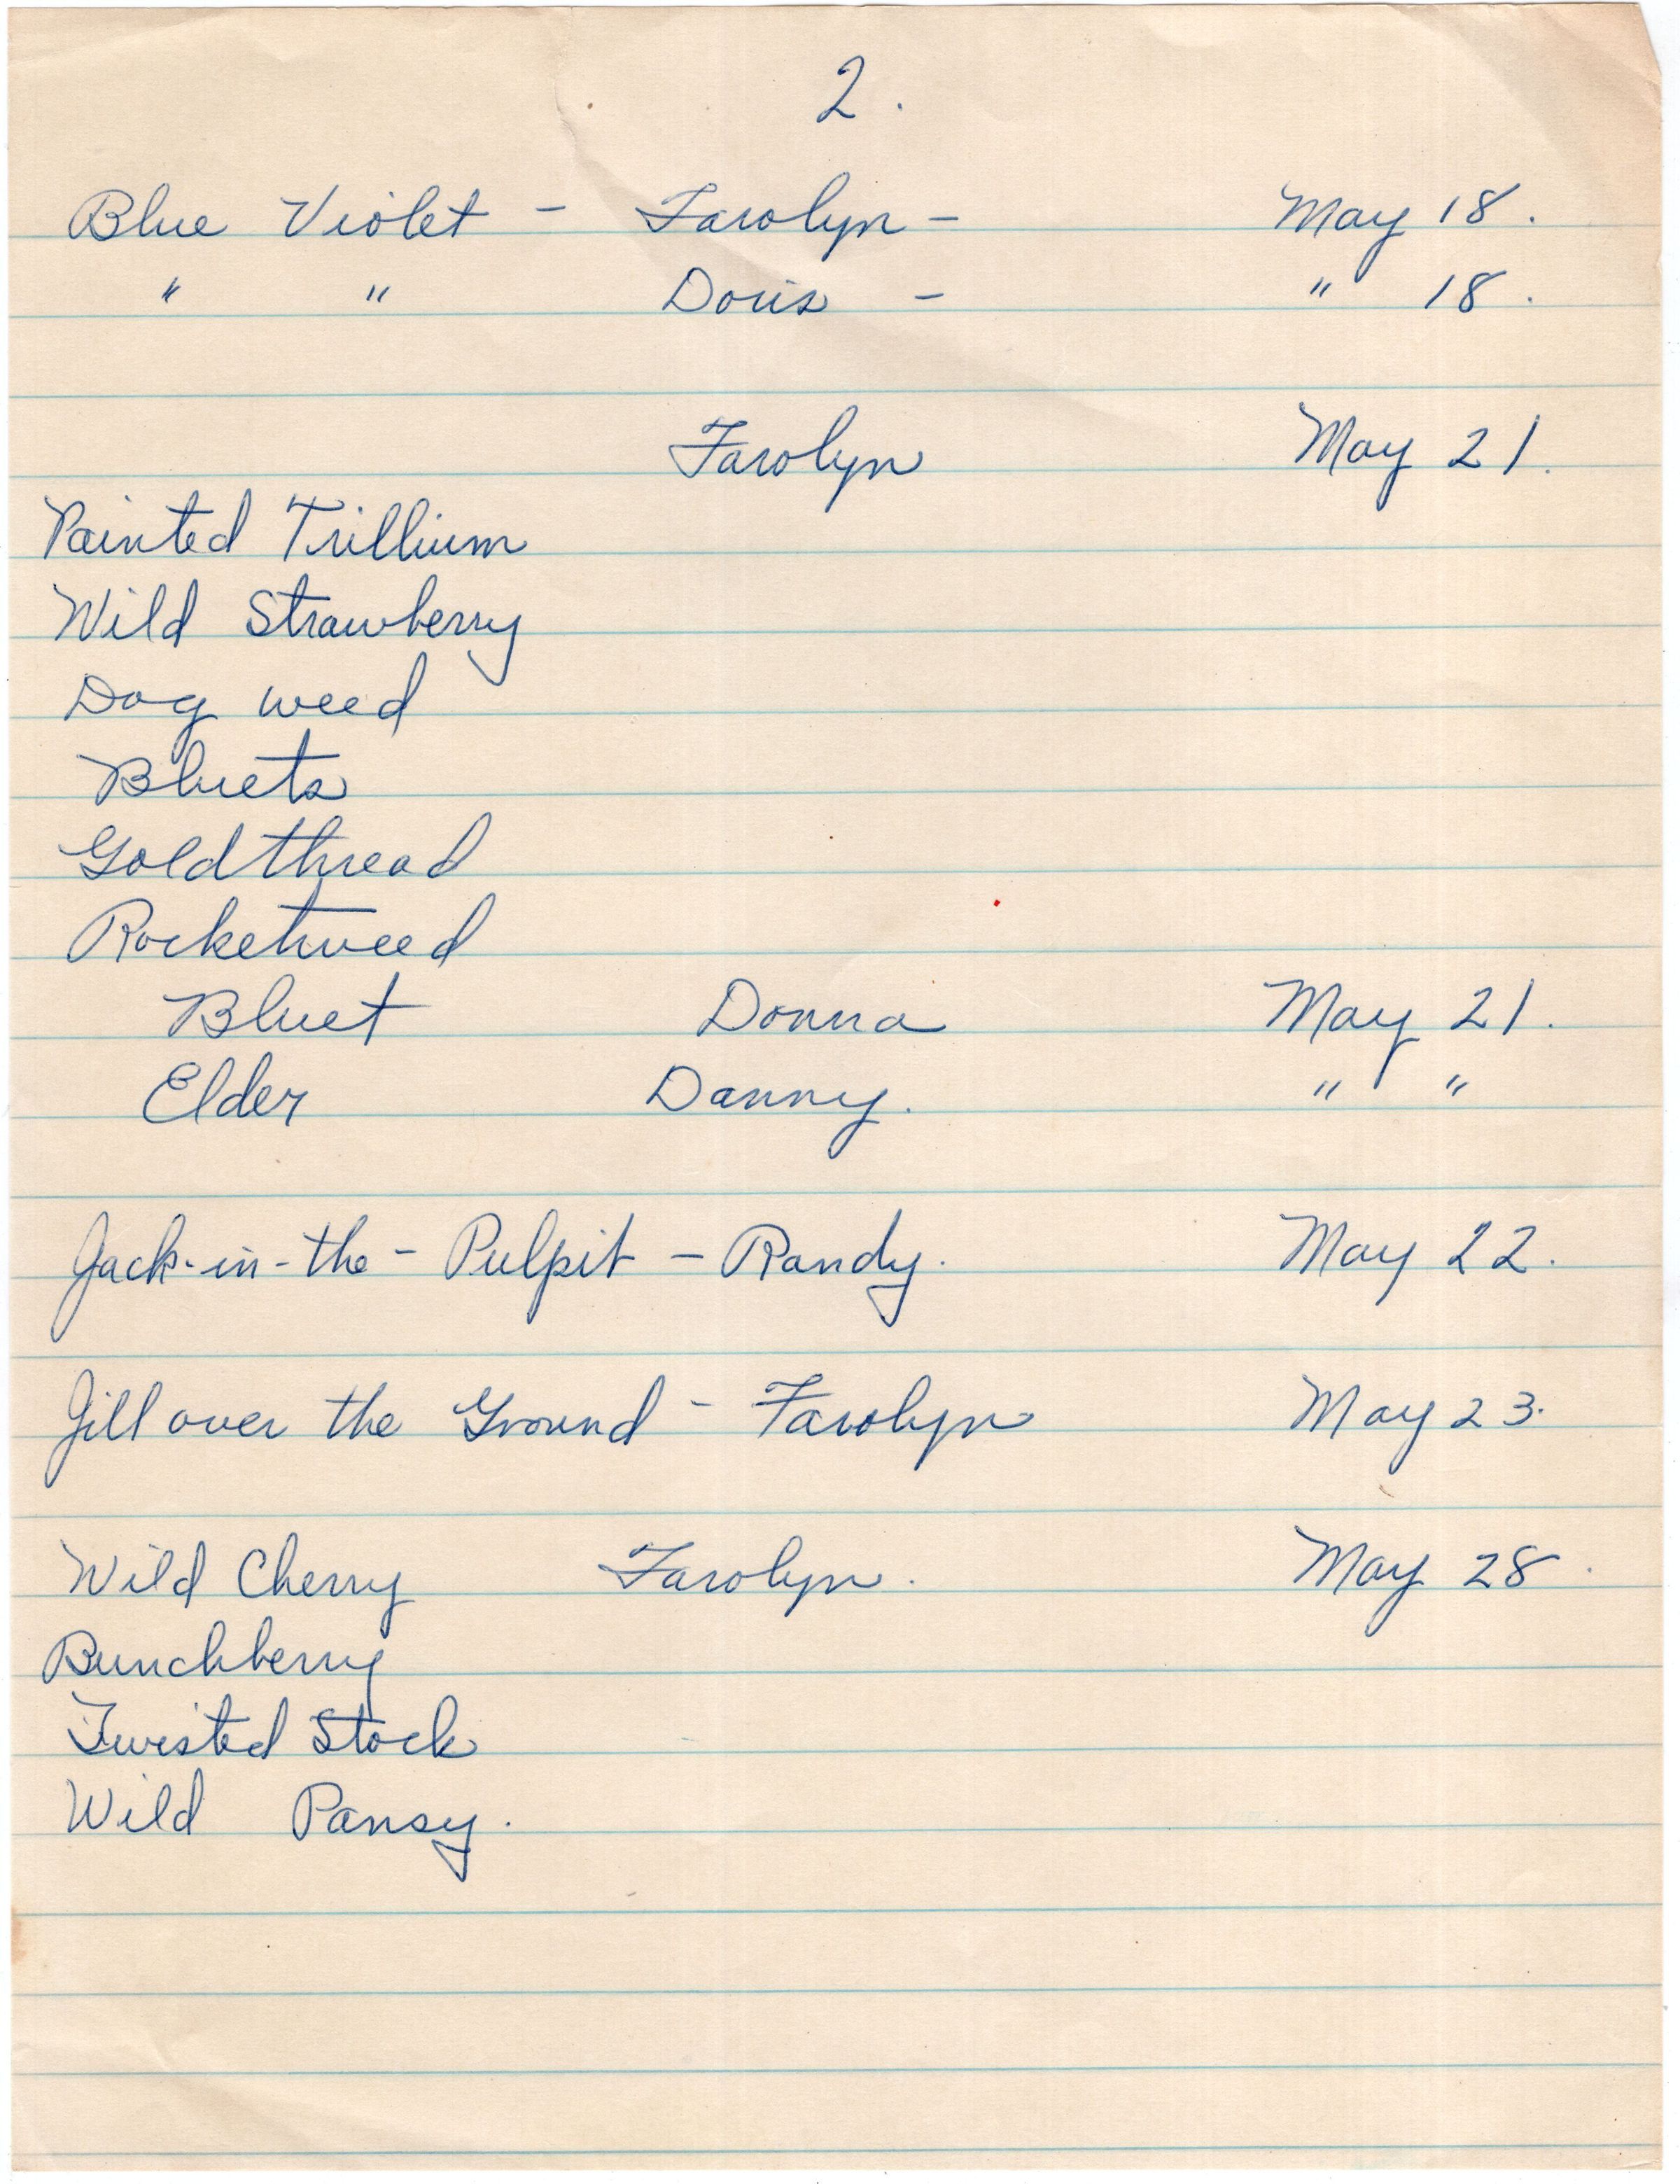 2.
Blue Violet - Farolyn - May 18.
" " Doris - " 18.
Farolyn May 21.
Painted Trillium
Wild Strawberry
Dog weed
Bluets
Goldthread
Rocketweed
Bluet Donna May 21.
Elder Danny. " "
Jack-in-the-Pulpit - Randy. May 22.
Jill over the Ground - Farolyn May 23.
Wild Cherry Farolyn. May 28.
Bunchberry
Twisted Stock
Wild Pansy.